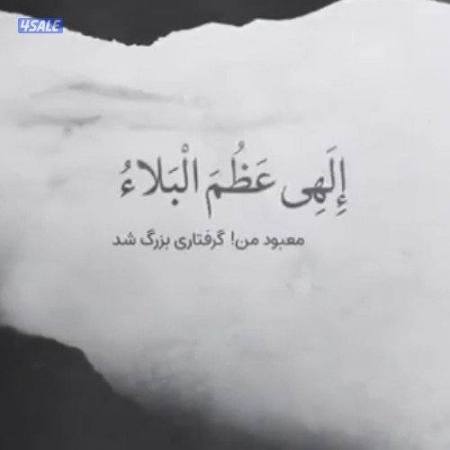 4SALE
إِلَهِی عَظُمَ الْبَلاءُ
معبود من! گرفتاری بزرگ شد